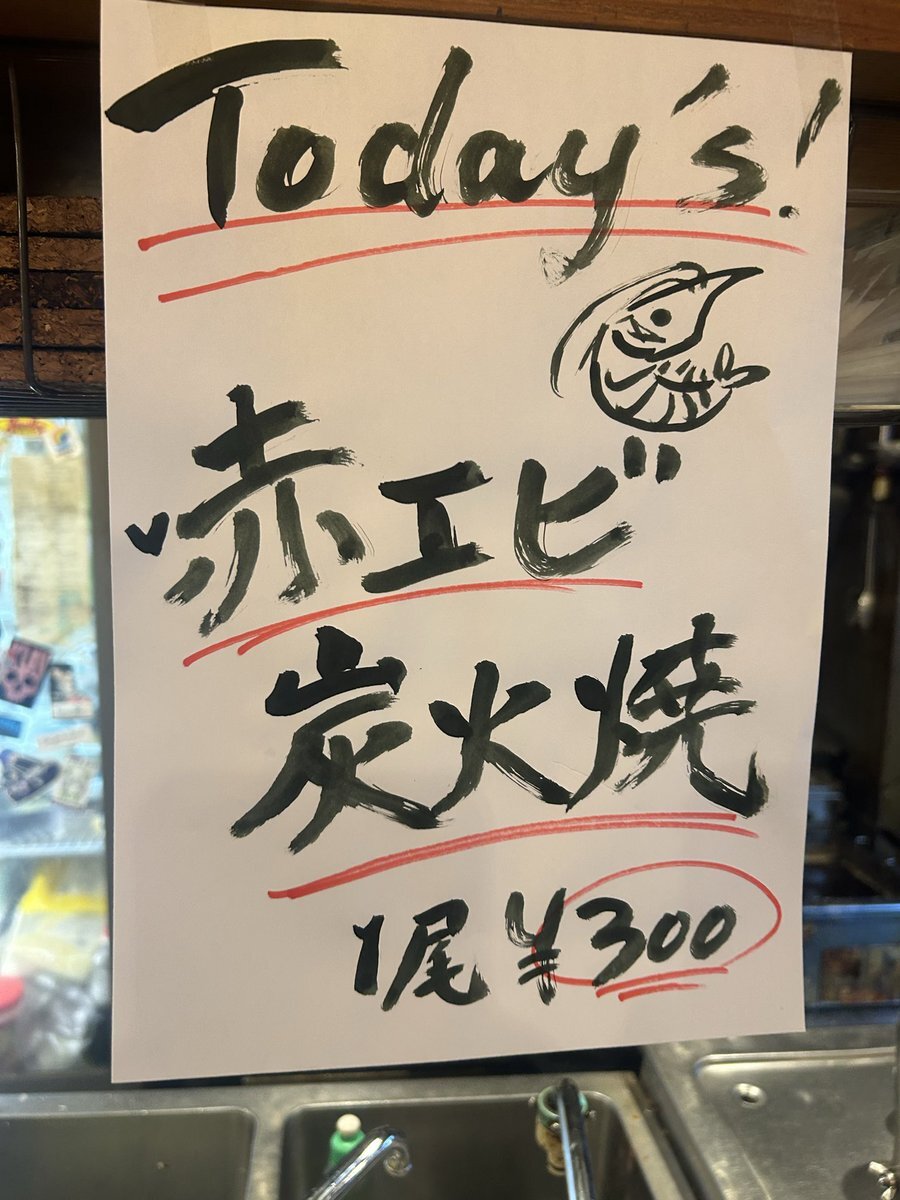 Today's!
赤エビ
炭火焼
1尾 ¥300